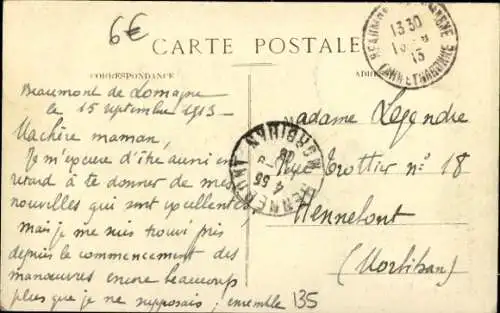 6€
CARTE POSTALE
CORRESPONDANCE
Beaumont de Lomagne
le 15 septembre 1913.
Ma chère maman,
Je m'excuse d'être aussi en
retard à te donner de mes
nouvelles qui sont excellentes,
mais je me suis trouvé pris
depuis le commencement des
manœuvres encore beaucoup
plus que je ne supposais; ensemble
135
13 30
13
TARN ET GARONNE
Madame Legendre
Rue Trottier n° 18
Hennebont
(Morbihan)
HENNEBONT
MORBIHAN
4 55